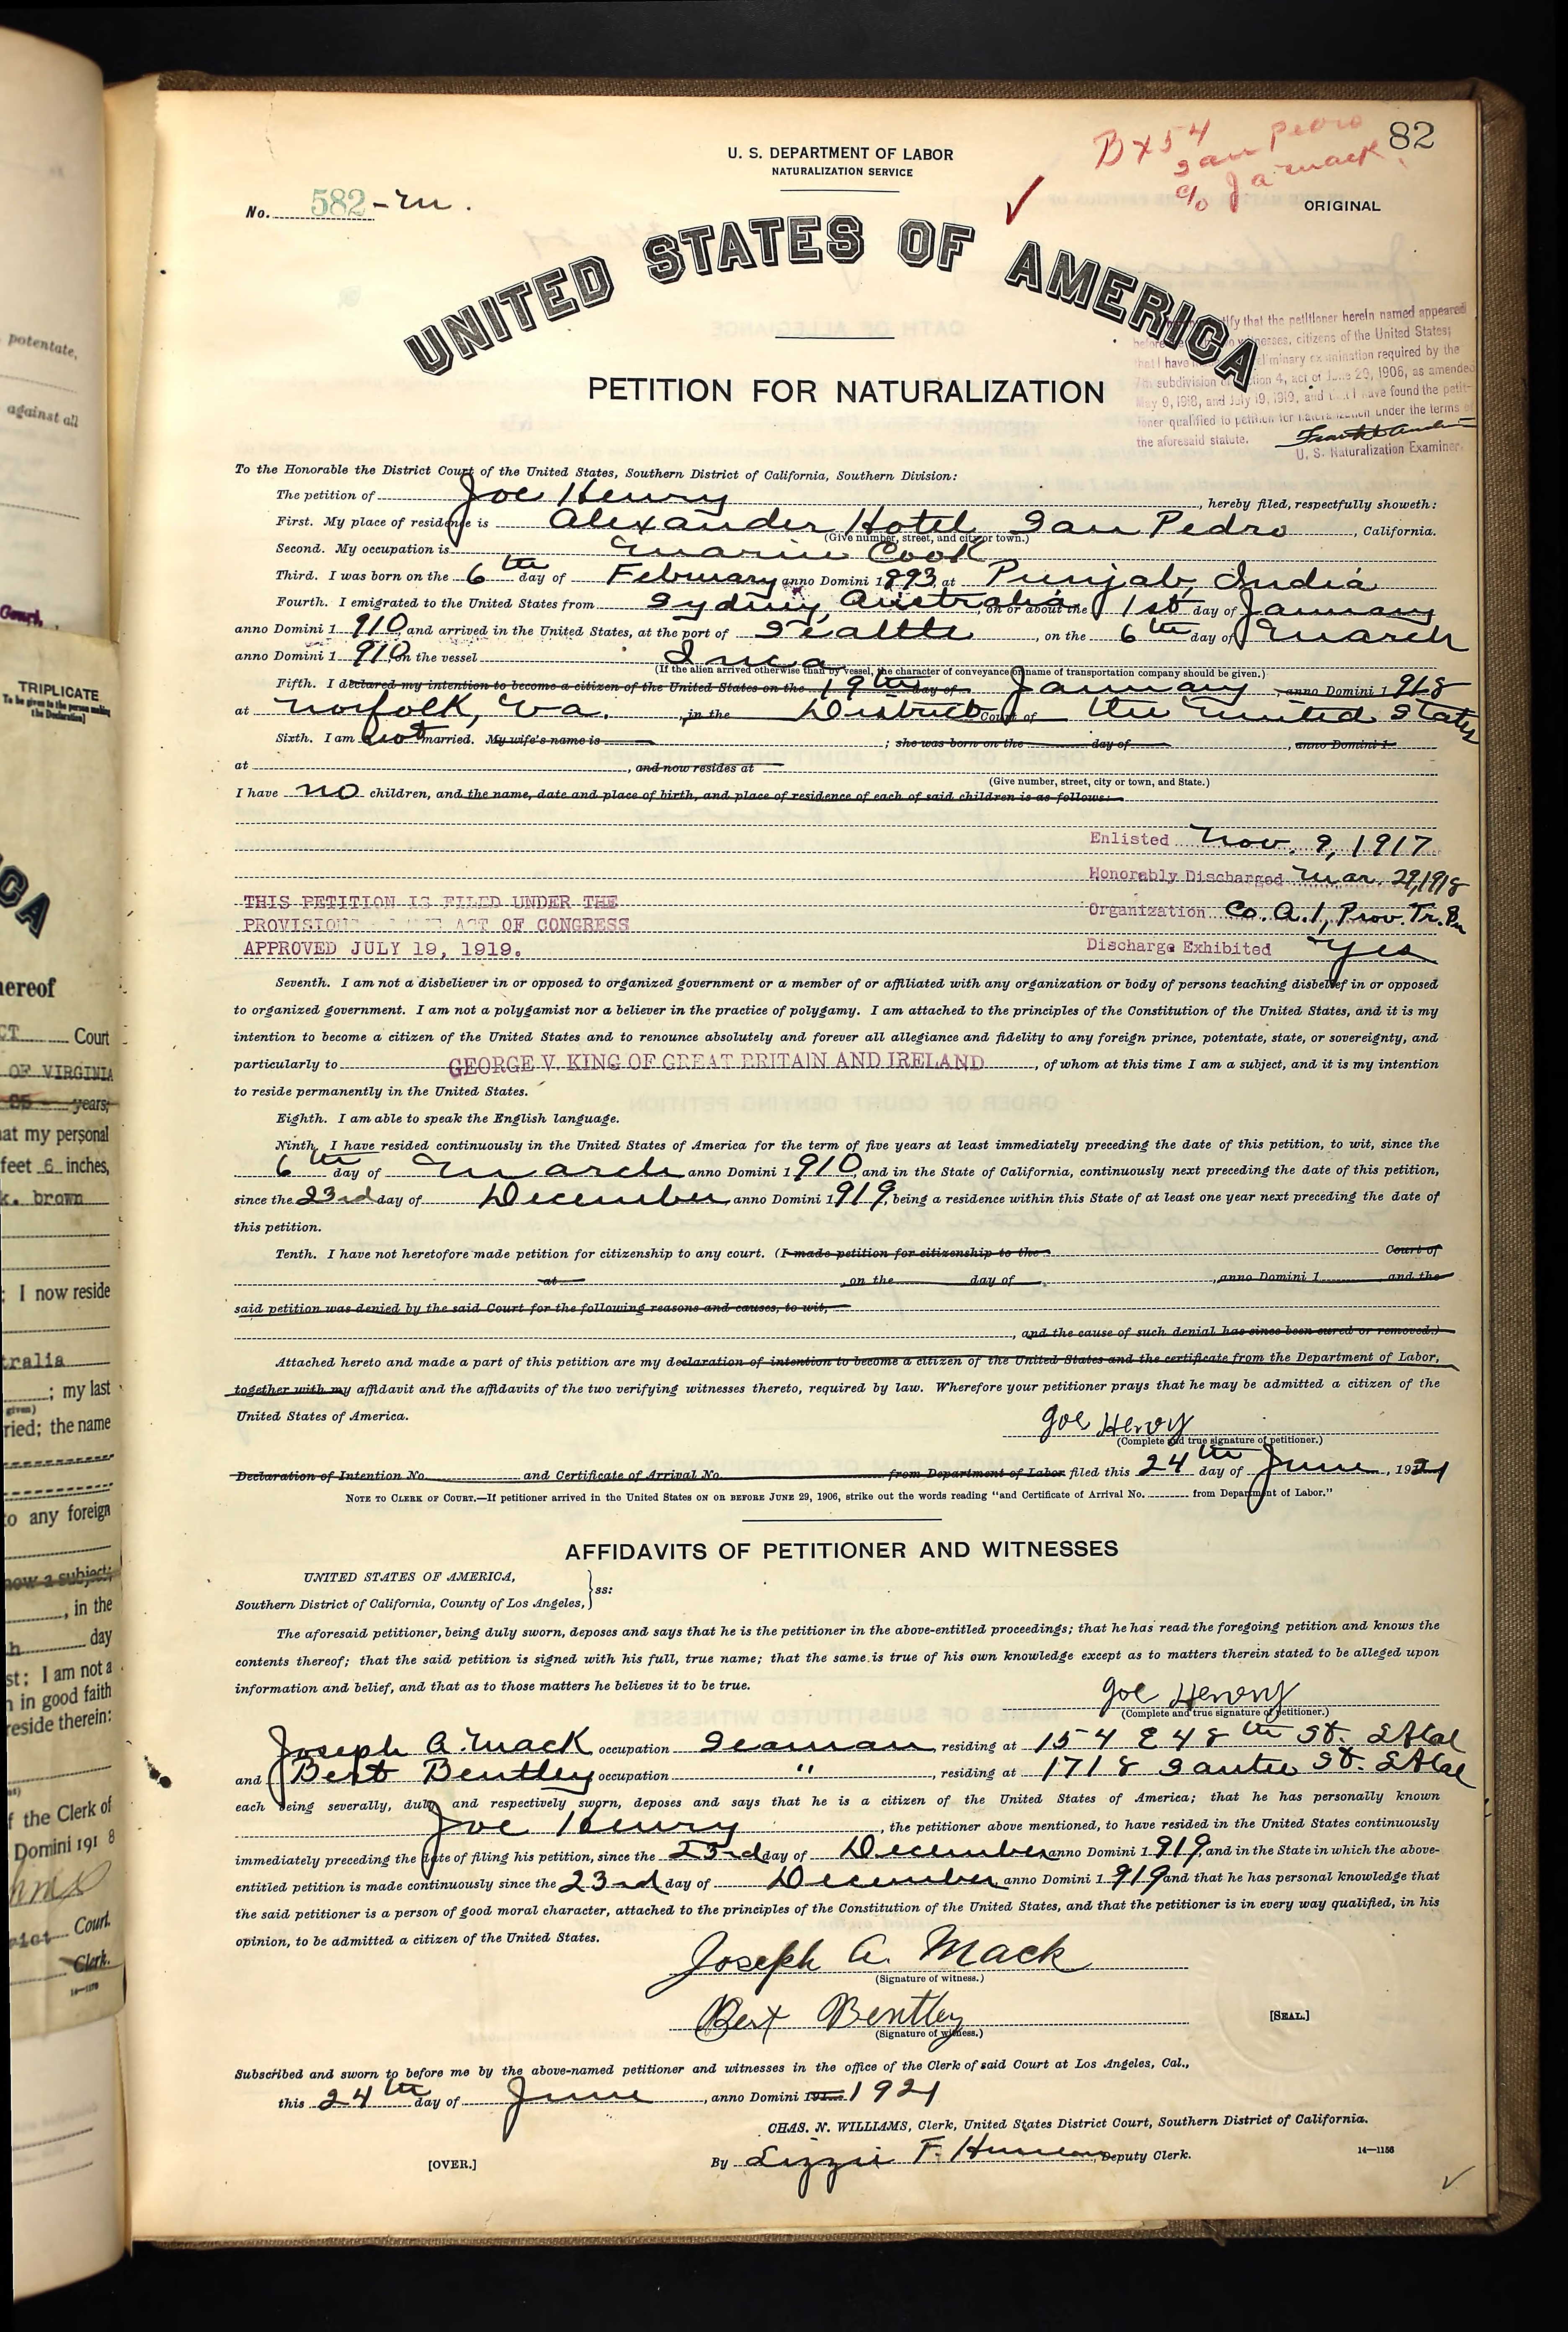 potentate,
against all
Court,
TRIPLICATE
To be given to the person making
the Declaration]
ICA
hereof
CT Court
OF VIRGINIA
years;
at my personal
feet 6 inches,
k. brown
: I now reside
tralia
; my last
given)
ried; the name
to any foreign
now a subject;
, in the
h day
st; I am not a
n in good faith
reside therein:
f the Clerk of
Domini 191 8
rict Court.
Clerk.
Bx 54 San Pedro
c/o J a mack
82
U. S. DEPARTMENT OF LABOR
NATURALIZATION SERVICE
No. 582-M.
ORIGINAL
UNITED STATES OF AMERICA
PETITION FOR NATURALIZATION
tify that the petitioner herein named appeared
before witnesses, citizens of the United States;
that I have preliminary examination required by the
7th subdivision of section 4, act of June 29, 1906, as amended
May 9, 1918, and July 19, 1919, and that I have found the petit-
ioner qualified to petition for naturalization under the terms of
the aforesaid statute.
U. S. Naturalization Examiner.
To the Honorable the District Court of the United States, Southern District of California, Southern Division:
The petition of Joe Henry, hereby filed, respectfully showeth:
First. My place of residence is Alexander Hotel San Pedro, California.
(Give number, street, and city or town.)
Second. My occupation is Marine Cook
Third. I was born on the 6th day of February anno Domini 1893, at Punjab, India
Fourth. I emigrated to the United States from Sydney, Australia, on or about the 1st day of January
anno Domini 1910, and arrived in the United States, at the port of Seattle, on the 6th day of March
anno Domini 1910, on the vessel Inca
(If the alien arrived otherwise than by vessel, the character of conveyance or name of transportation company should be given.)
Fifth. I declared my intention to become a citizen of the United States on the 19th day of January, anno Domini 1918
at Norfolk, Va. in the District Court of the United States
Sixth. I am not married. My wife's name is ; she was born on the day of , anno Domini 1
at , and now resides at
(Give number, street, city or town, and State.)
I have no children, and the name, date and place of birth, and place of residence of each of said children is as follows:
Enlisted Nov. 9, 1917
Honorably Discharged Mar. 29, 1918
THIS PETITION IS FILED UNDER THE
Organization Co. A. 1, Prov. Tr. Bn
PROVISIONS OF THE ACT OF CONGRESS
APPROVED JULY 19, 1919.
Discharge Exhibited Yes
Seventh. I am not a disbeliever in or opposed to organized government or a member of or affiliated with any organization or body of persons teaching disbelief in or opposed
to organized government. I am not a polygamist nor a believer in the practice of polygamy. I am attached to the principles of the Constitution of the United States, and it is my
intention to become a citizen of the United States and to renounce absolutely and forever all allegiance and fidelity to any foreign prince, potentate, state, or sovereignty, and
particularly to GEORGE V. KING OF GREAT BRITAIN AND IRELAND, of whom at this time I am a subject, and it is my intention
to reside permanently in the United States.
Eighth. I am able to speak the English language.
Ninth. I have resided continuously in the United States of America for the term of five years at least immediately preceding the date of this petition, to wit, since the
6th day of March anno Domini 1910, and in the State of California, continuously next preceding the date of this petition,
since the 23rd day of December, anno Domini 1919, being a residence within this State of at least one year next preceding the date of
this petition.
Tenth. I have not heretofore made petition for citizenship to any court. (I made petition for citizenship to the Court of
at , on the day of , anno Domini 1 and the
said petition was denied by the said Court for the following reasons and causes, to wit,
, and the cause of such denial has since been cured or removed.)
Attached hereto and made a part of this petition are my declaration of intention to become a citizen of the United States and the certificate from the Department of Labor,
together with my affidavit and the affidavits of the two verifying witnesses thereto, required by law. Wherefore your petitioner prays that he may be admitted a citizen of the
United States of America.
Joe Henry
(Complete and true signature of petitioner.)
Declaration of Intention No. and Certificate of Arrival No. from Department of Labor filed this 24th day of June, 1921
NOTE TO CLERK OF COURT.—If petitioner arrived in the United States ON OR BEFORE JUNE 29, 1906, strike out the words reading "and Certificate of Arrival No. from Department of Labor."
AFFIDAVITS OF PETITIONER AND WITNESSES
UNITED STATES OF AMERICA,
Southern District of California, County of Los Angeles, } ss:
The aforesaid petitioner, being duly sworn, deposes and says that he is the petitioner in the above-entitled proceedings; that he has read the foregoing petition and knows the
contents thereof; that the said petition is signed with his full, true name; that the same is true of his own knowledge except as to matters therein stated to be alleged upon
information and belief, and that as to those matters he believes it to be true.
Joe Henry
(Complete and true signature of petitioner.)
Joseph A. Mack occupation Seaman, residing at 154 E 48th St. LA Cal
and Bert Bentley occupation ", residing at 1718 Santee St. LA Cal
each being severally, duly, and respectively sworn, deposes and says that he is a citizen of the United States of America; that he has personally known
Joe Henry, the petitioner above mentioned, to have resided in the United States continuously
immediately preceding the date of filing his petition, since the 23rd day of December anno Domini 1919, and in the State in which the above-
entitled petition is made continuously since the 23rd day of December anno Domini 1919 and that he has personal knowledge that
the said petitioner is a person of good moral character, attached to the principles of the Constitution of the United States, and that the petitioner is in every way qualified, in his
opinion, to be admitted a citizen of the United States.
Joseph A. Mack
(Signature of witness.)
Bert Bentley
(Signature of witness.)
[SEAL.]
Subscribed and sworn to before me by the above-named petitioner and witnesses in the office of the Clerk of said Court at Los Angeles, Cal.,
this 24th day of June, anno Domini 1921
CHAS. N. WILLIAMS, Clerk, United States District Court, Southern District of California.
[OVER.]
By Lizzie F. Deputy Clerk.
14—1156